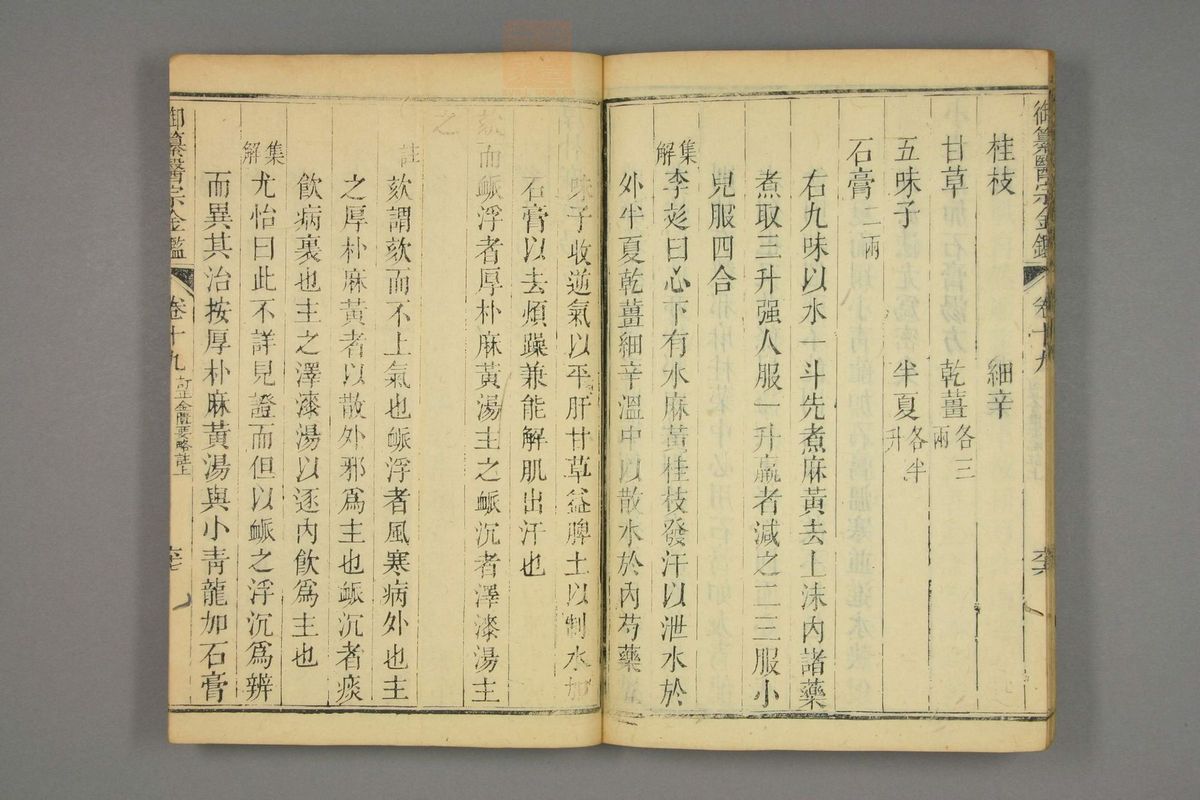 御纂醫宗金鑑 卷十九 六六
桂枝 細辛
甘草 乾薑各三兩
五味子 半夏各半升
石膏二兩
右九味以水一斗先煮麻黃去上沫內諸藥
煮取三升强人服一升羸者減之二三服小
兒服四合
集解
李彣曰心下有水麻黃桂枝發汗以泄水於
外半夏乾薑細辛溫中以散水於內芍藥
味子收逆氣以平肝甘草益脾土以制水加
石膏以去煩躁兼能解肌出汗也
欬而䘑浮者厚朴麻黃湯主之䘑沉者澤漆湯主
之
註
欬謂欬而不上氣也䘑浮者風寒病外也主
之厚朴麻黃者以散外邪爲主也䘑沉者痰
飲病裏也主之澤漆湯以逐內飲爲主也
集解
尤怡曰此不詳見證而但以䘑之浮沉爲辨
而異其治按厚朴麻黃湯與小靑龍加石膏
御纂醫宗金鑑 卷十九 訂正金匱要略註上 六七